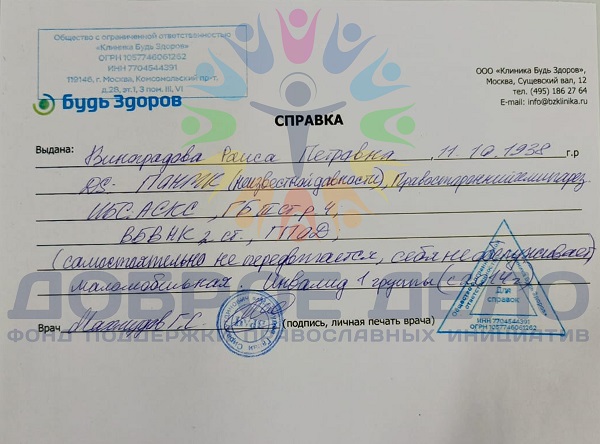 Общество с ограниченной ответственностью
«Клиника Будь Здоров»
ОГРН 1057746061262
ИНН 7704544391
119146, г. Москва, Комсомольский пр-т,
д.28, эт.1, 3 пом. III, VI
Будь Здоров
ООО «Клиника Будь Здоров»,
Москва, Сущевский вал, 12
тел. (495) 186 27 64
E-mail: info@bzklinika.ru
СПРАВКА
Выдана: Виноградова Раиса Петровна, 11.10.1938 г.р
DS: ПОНМК (неизвестной давности), Правосторонний гемипарез.
ИБС. АСКС, ГБ III ст. р. 4,
ВБВНК 2 ст.,
(самостоятельно не передвигается, себя не обслуживает)
маломобильная. Инвалид 1 группы
ДОБРОЕ ДЕЛО
ФОНД ПОДДЕРЖКИ ПРАВОСЛАВНЫХ ИНИЦИАТИВ
Врач (подпись, личная печать врача)
Для
справок
ИНН 7704544391
ОГРН 1057746061262